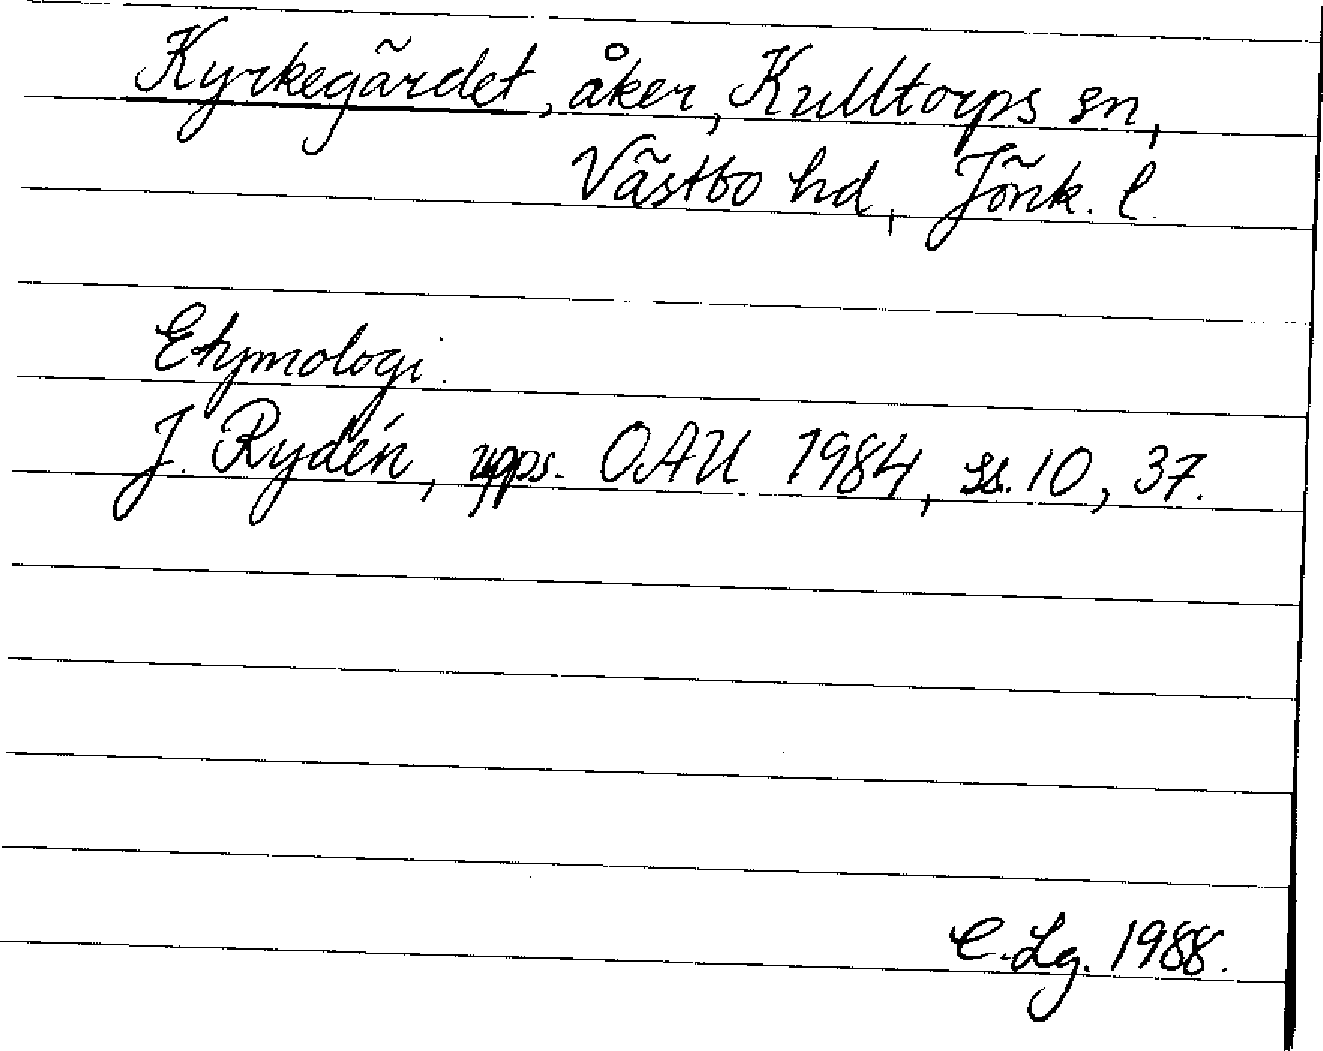 Kyrkegärdet, åker, Kulltorps sn,
Västbo hd, Jönk. l.
Etymologi.
J. Rydén, upps. OAU 1984, ss. 10, 37.
C. Lg. 1988.